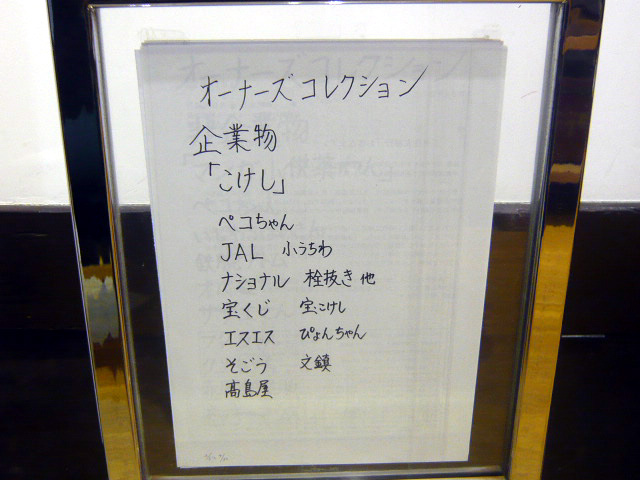 オーナーズコレクション
企業物
「こけし」
ペコちゃん
JAL 小うちわ
ナショナル 栓抜き 他
宝くじ 宝こけし
エスエス ぴょんちゃん
そごう 文鎮
髙島屋